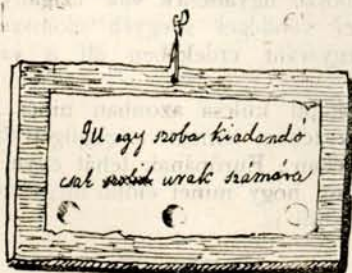 Itt egy szoba kiadandó
csak urak számára